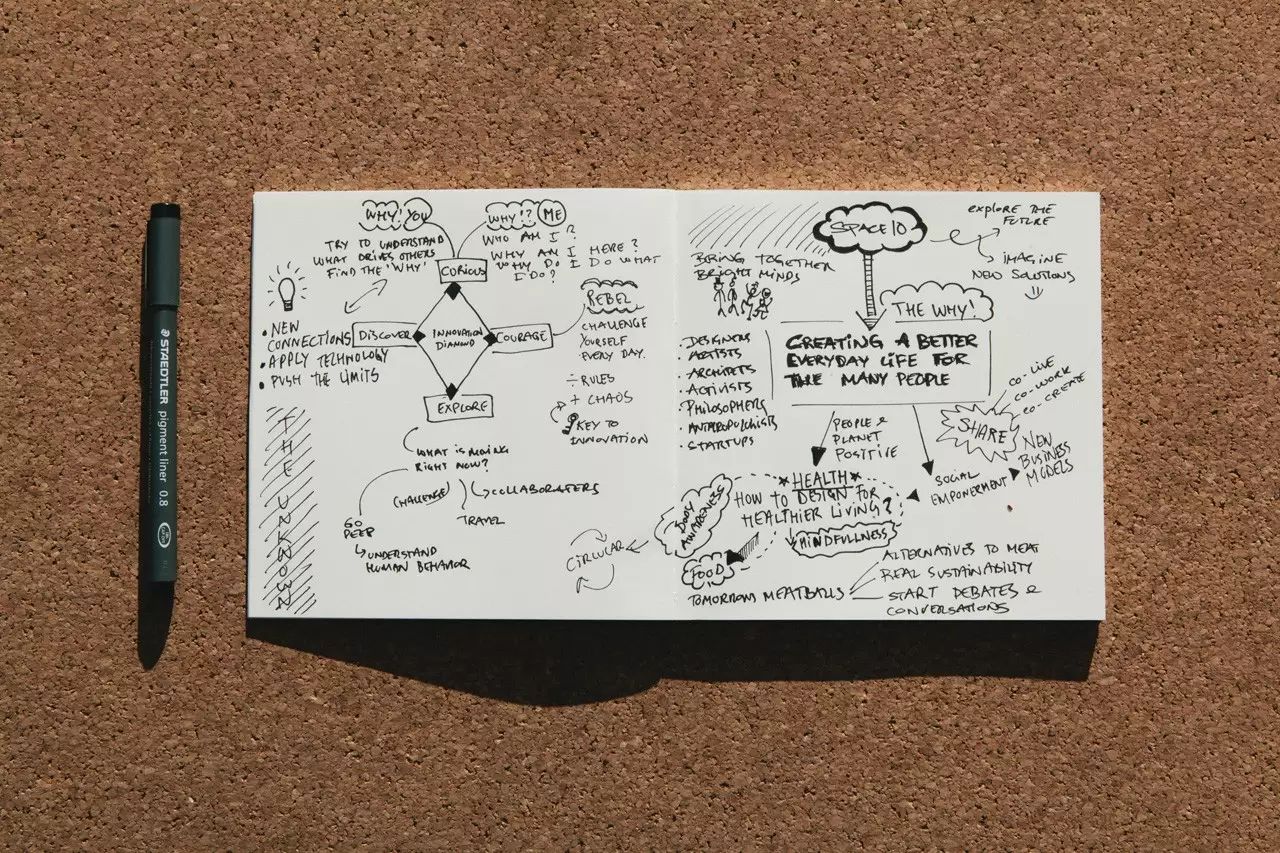 STAEDTLER pigment liner 0.8
WHY! YOU
TRY TO UNDERSTAND
WHAT DRIVES OTHERS
FIND THE 'WHY'
WHY!? ME
WHO AM I?
WHY AM I HERE?
WHY DO I DO WHAT
I DO?
CURIOUS
DISCOVER
INNOVATION
DIAMOND
COURAGE
EXPLORE
• NEW
CONNECTIONS
• APPLY TECHNOLOGY
• PUSH THE LIMITS
THE UNKNOWN
REBEL
CHALLENGE
YOURSELF
EVERY DAY.
÷ RULES
+ CHAOS
KEY TO
INNOVATION
WHAT IS
RIGHT NOW?
CHALLENGE
COLLABORATERS
TRAVEL
GO
DEEP
UNDERSTAND
HUMAN BEHAVIOR
CIRCULAR
SPACE10
explore THE
FUTURE
IMAGINE
NEW SOLUTIONS
BRING TOGETHER
BRIGHT MINDS
• DESIGNERS
• ARTISTS
• ARCHITETS
• ACTIVISTS
• PHILOSOPHERS
• STARTUPS
THE WHY!
CREATING A BETTER
EVERYDAY LIFE FOR
THE MANY PEOPLE
PEOPLE &
PLANET
POSITIVE
SHARE
CO-LIVE
CO-WORK
CO-CREATE
NEW
BUSINESS
MODELS
SOCIAL
EMPOWERMENT
HEALTH
HOW TO DESIGN FOR
HEALTHIER LIVING?
BODY
AWARENESS
MINDFULLNESS
FOOD
TOMORROWS MEATBALLS
ALTERNATIVES TO MEAT
REAL SUSTAINABILITY
START DEBATES &
CONVERSATIONS